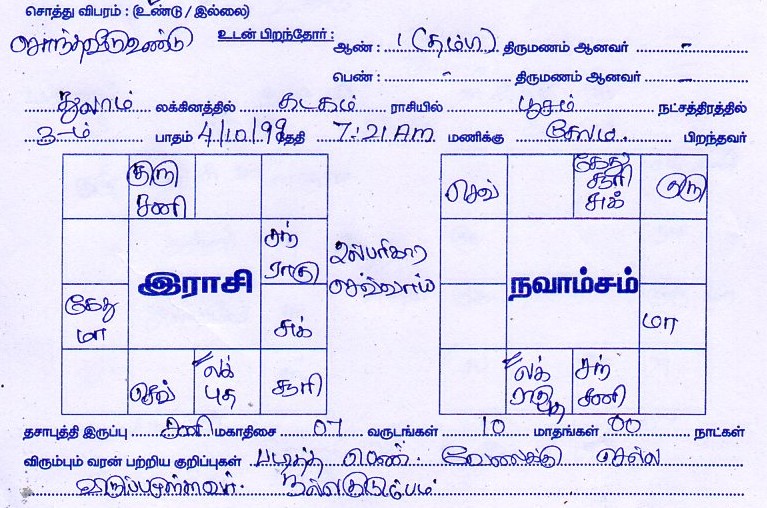 சொத்து விபரம் : (உண்டு / இல்லை)
சொந்தவீடு உண்டு உடன் பிறந்தோர் : ஆண் : 1 (தம்பி) திருமணம் ஆனவர் -
பெண் : - திருமணம் ஆனவர் -
துலாம் லக்கினத்தில் கடகம் ராசியில் பூசம் நட்சத்திரத்தில்
3-ம் பாதம் 4/10/99 தேதி 7:21 AM மணிக்கு சேலம். பிறந்தவர்
குரு
சனி
சந்
ராகு
இராசி
கேது
மா
சுக்
செவ்
லக்
புத
சூரி
பரிகார
செவ்வாய்
செவ்
கேது
சூரி
சுக்
குரு
நவாம்சம்
மா
லக்
சந்
சனி
தசாபுத்தி இருப்பு சனி மகாதிசை 07 வருடங்கள் 10 மாதங்கள் 00 நாட்கள்
விரும்பும் வரன் பற்றிய குறிப்புகள் படித்த பெண். வேலைக்கு செல்ல
விருப்பமுள்ளவர். நல்லகுடும்பம்